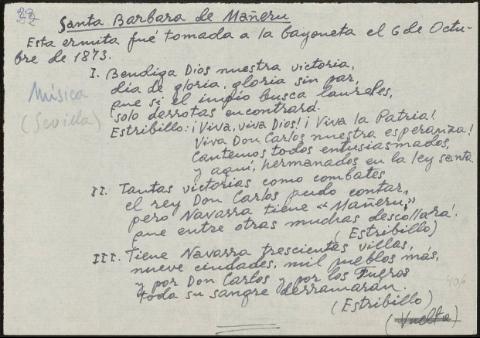 22
Santa Barbara de Mañeru
Esta ermita fué tomada a la bayoneta el 6 de Octu-
bre de 1873.
I. Bendiga Dios nuestra victoria,
dia de gloria, gloria sin par,
que si el impio busca laureles,
solo derrotas encontrará.
Estribillo: ¡Viva, viva Dios! ¡Viva la Patria!
Viva Don Carlos nuestra esperanza!
Cantemos todos entusiasmados,
y aqui, hermanados en la ley santa.
Música
(Sevilla)
II. Tantas victorias como combates
el rey Don Carlos pudo contar,
pero Navarra tiene "Mañeru,"
que entre otras muchas descollará.
(Estribillo)
III. Tiene Navarra trescientas villas,
nueve ciudades, mil pueblos más,
y por Don Carlos y por los Fueros
toda su sangre derramarán.
(Estribillo)
(Vuelta)